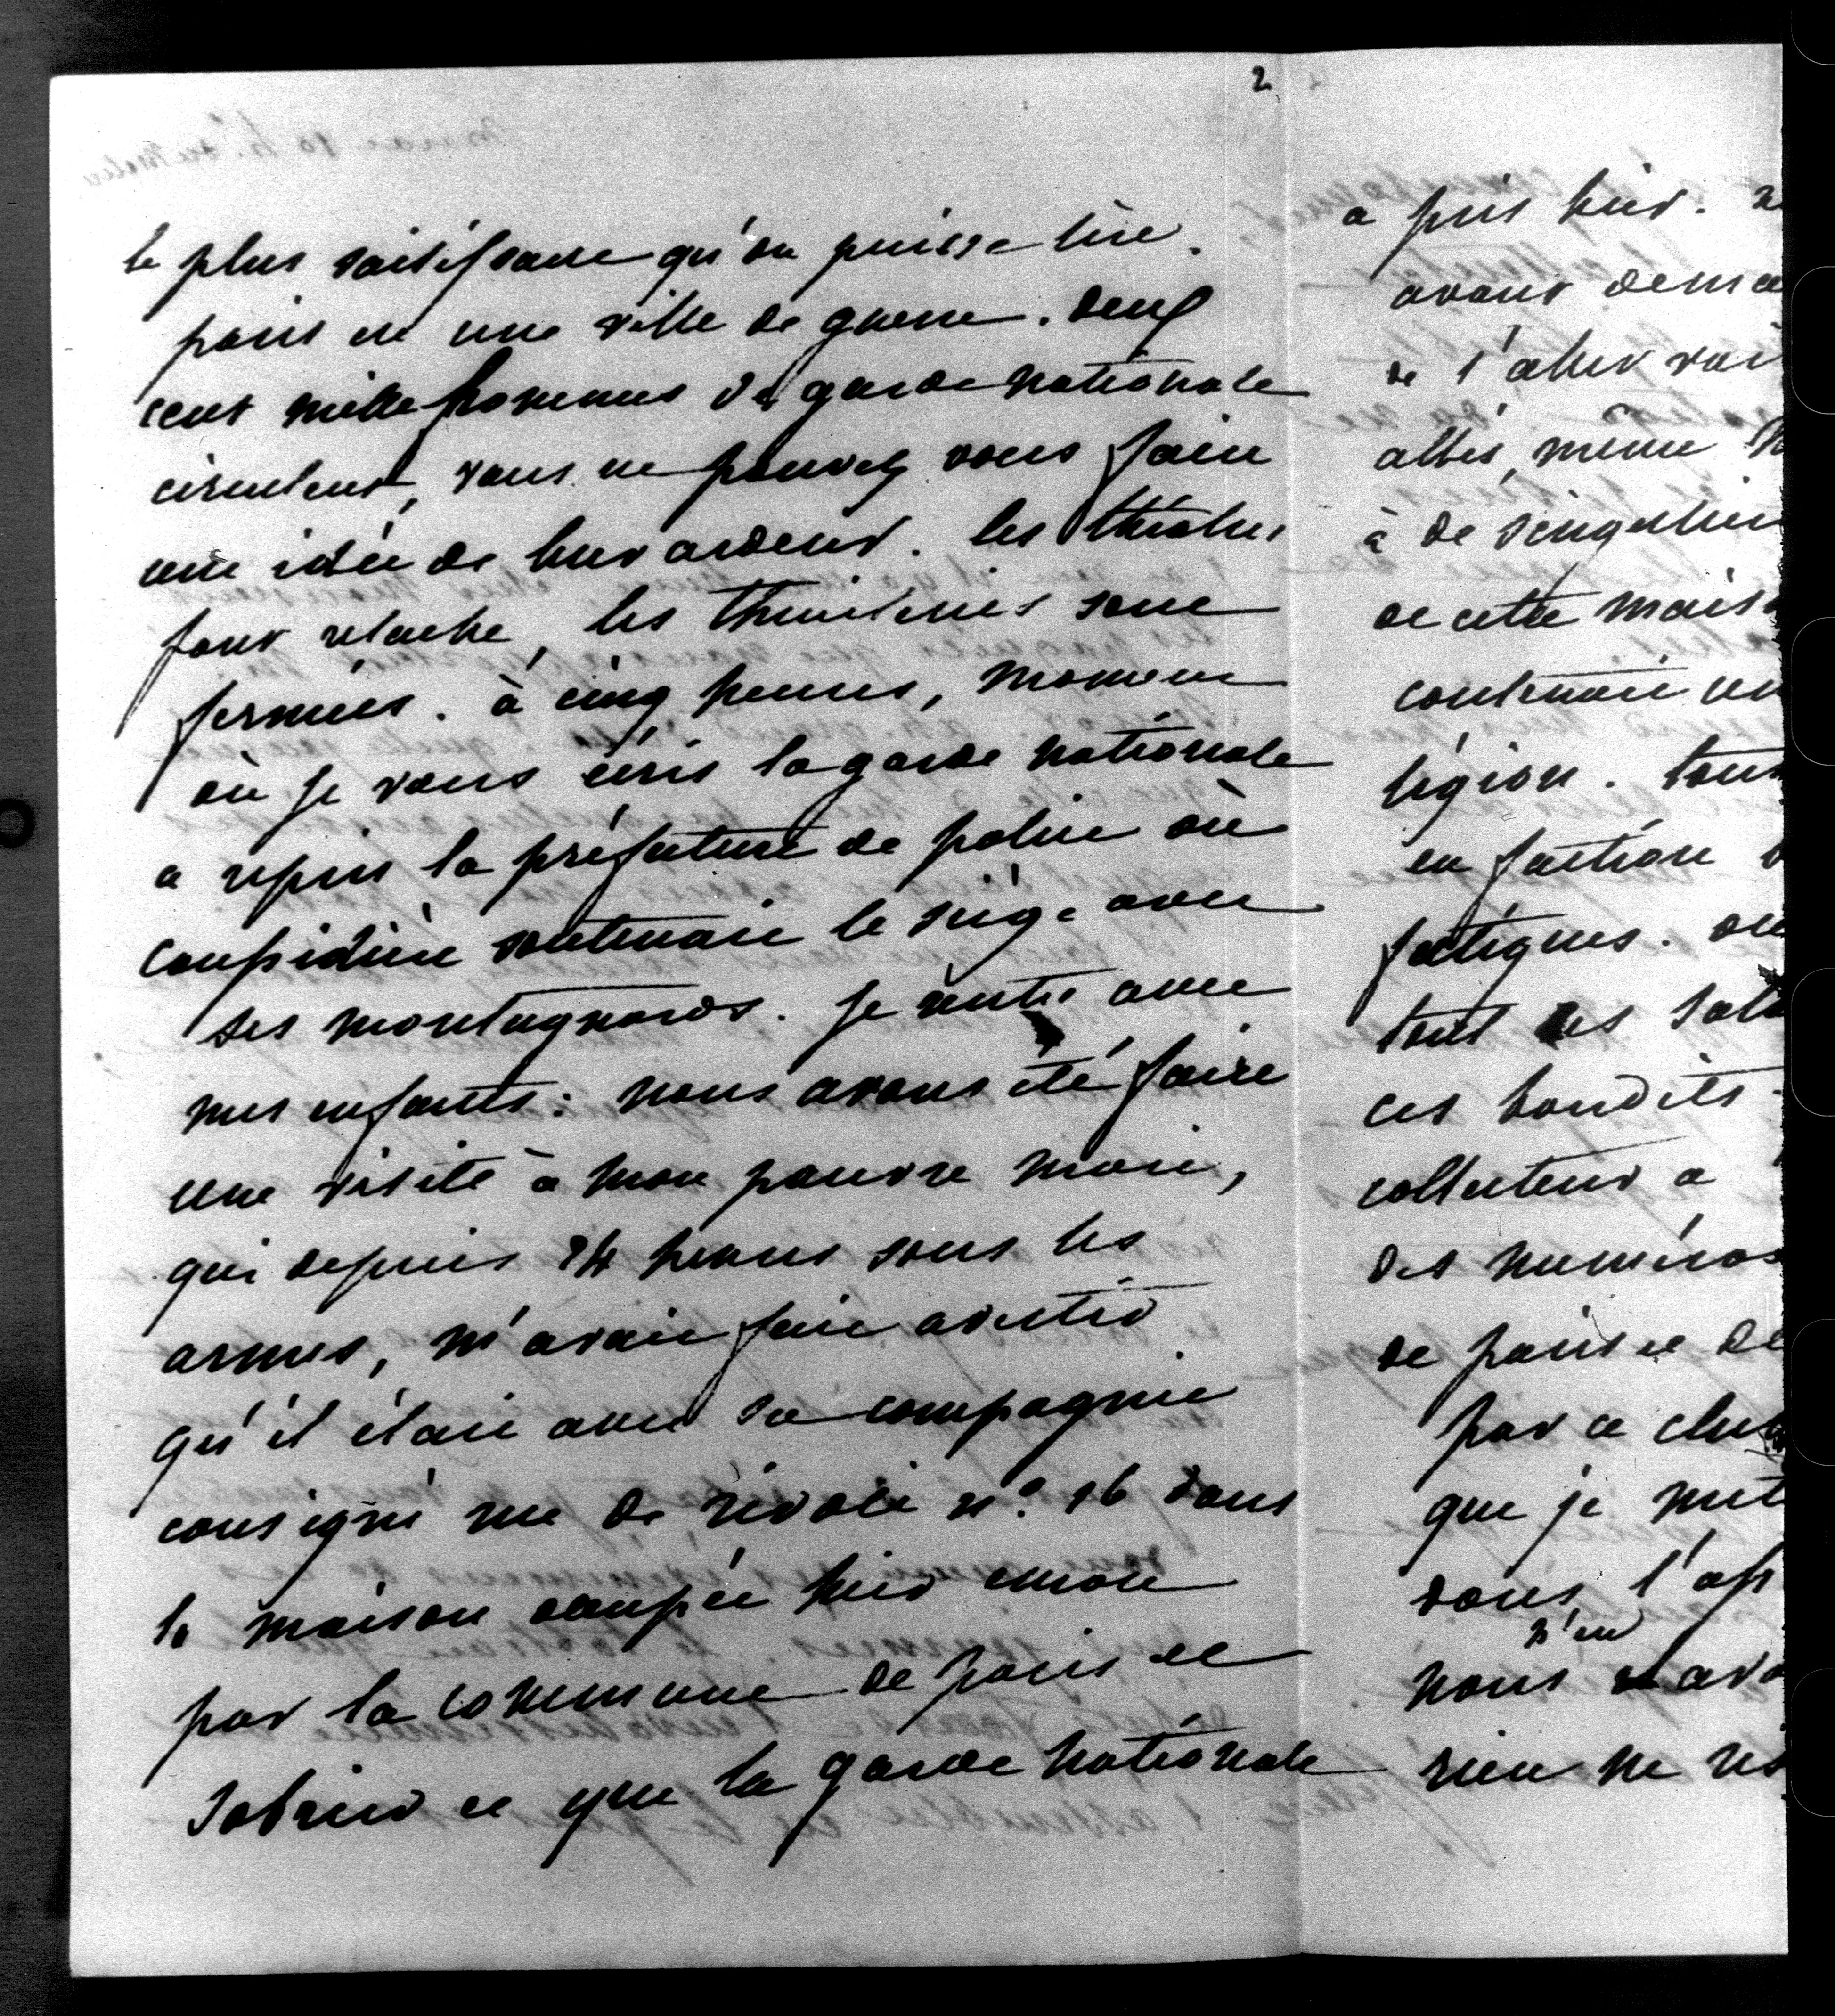 2
le plus saisissant qu'on puisse lire.
paris est une ville de guerre. deux
cent mille hommes de garde nationale
circulent, vous ne pouvez vous faire
une idée de leur ardeur. les théatres
font relache, les thuileries sont
fermées. à cinq heures, moment
où je vous écris la garde nationale
a repris la préfecture de police où
Caussidière soutenait le siège avec
ses montagnards. je rentre avec
mes enfants: nous avons été faire
une visite à mon pauvre mari,
qui depuis 24 heures sous les
armes, m'avait fait avertir
qu'il était avec sa compagnie
consigné rue de rivoli nº. 16 dans
la maison occupée hier encore
par la commune de paris et
Sobrier et que la garde nationale
a pris hier.
ayant dema
de l'aller voir
allés, même
à de singulier
de cette maiso
contenait un
légion. tous
en faction
fatigues. on
tout les
ces bandits
collecteur a
des numéros
de paris et de
par ce club
que je met
dans l'ap
n'en
nous avo
rien ne